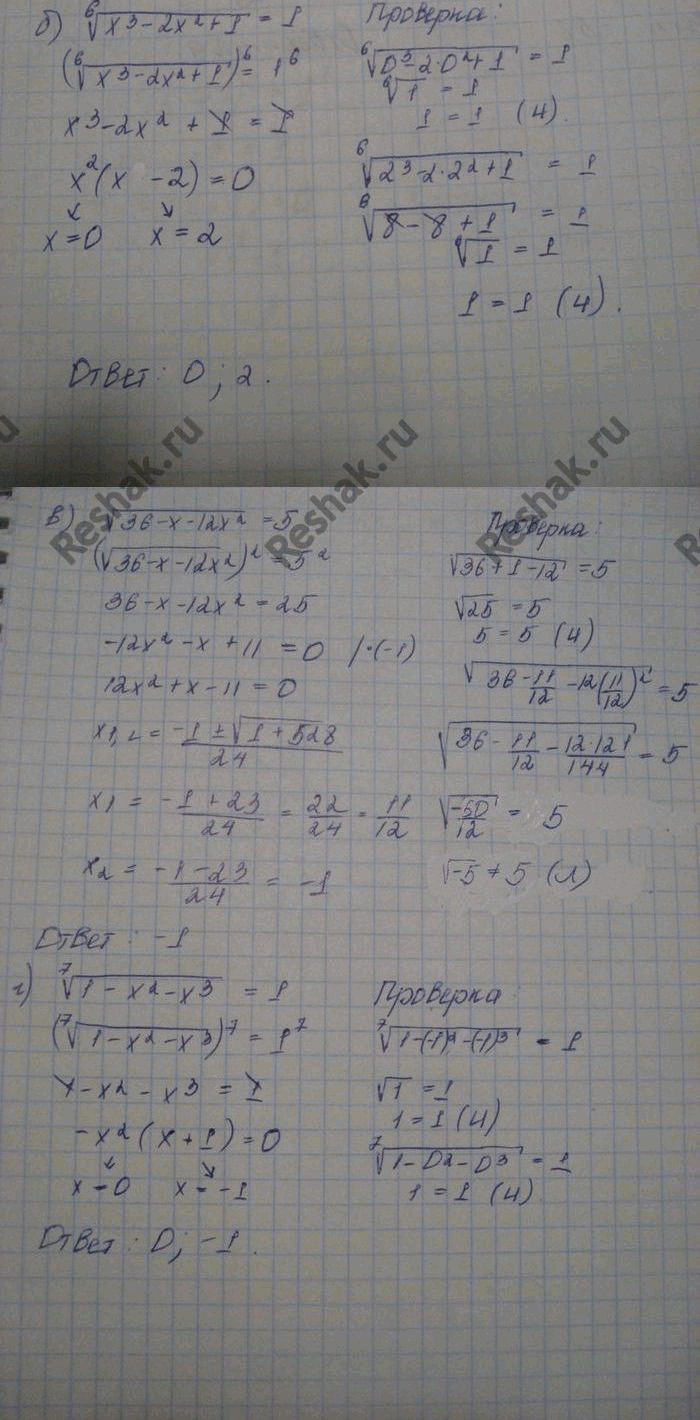 б) ⁶√(x³-2x²+1) = 1
(⁶√(x³-2x²+1))⁶ = 1⁶
x³-2x² + 1 = 1
x²(x -2) = 0
x=0 x=2
Проверка:
⁶√(0³-2·0²+1) = 1
⁶√1 = 1
1 = 1 (И).
⁶√(2³-2·2²+1) = 1
⁶√(8-8+1) = 1
⁶√1 = 1
1 = 1 (И).
Ответ: 0; 2.
Reshak.ru
Reshak.ru
Reshak.ru
в) √(36-x-12x²) = 5
(√(36-x-12x²))² = 5²
36-x-12x² = 25
-12x²-x+11 = 0 |·(-1)
12x²+x-11 = 0
x₁,₂ = (-1±√(1+528))/24
x₁ = (-1+23)/24 = 22/24 = 11/12
x₂ = (-1-23)/24 = -1
Проверка:
√(36+1-12) = 5
√25 = 5
5 = 5 (И)
√(36-11/12-12(11/12)²) = 5
√(36-11/12-12·121/144) = 5
√(-50/12) = 5
√-5 ≠ 5 (Л)
Ответ: -1
г) ⁷√(1-x²-x³) = 1
(⁷√(1-x²-x³))⁷ = 1⁷
1-x²-x³ = 1
-x²(x+1) = 0
x=0 x=-1
Проверка
⁷√(1-(-1)²-(-1)³) = 1
√1 = 1
1 = 1 (И)
⁷√(1-0²-0³) = 1
1 = 1 (И)
Ответ: 0; -1.